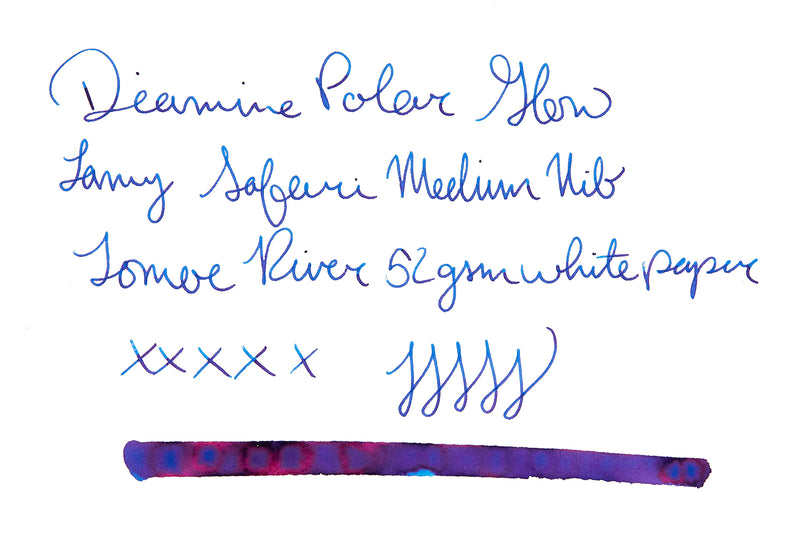 Diamine Polar Glow
Lamy Safari Medium Nib
Tomoe River 52gsm white paper
XXXXX